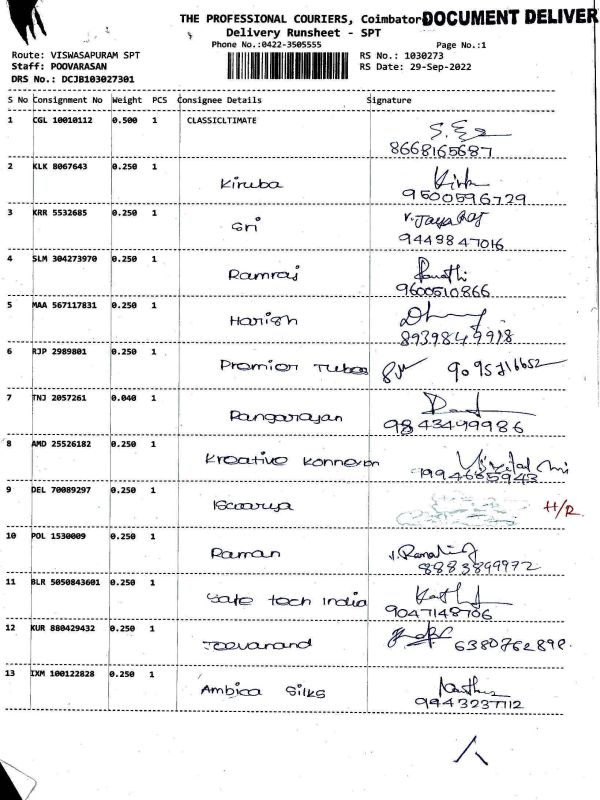 THE PROFESSIONAL COURIERS, Coimbator DOCUMENT DELIVER
Delivery Runsheet - SPT
Phone No.:0422-3505555 Page No.:1
Route: VISWASAPURAM SPT RS No.: 1030273
Staff: POOVARASAN RS Date: 29-Sep-2022
DRS No.: DCJB103027301
S No Consignment No Weight PCS Consignee Details Signature
1 CGL 10010112 0.500 1 CLASSICLTIMATE
8668165687
2 KLK 8067643 0.250 1
Kiruba
9500596729
3 KRR 5532685 0.250 1
Sri V. Jayaraj
9443847016
4 SLM 304273970 0.250 1
Ramraj
9600510866
5 MAA 567117831 0.250 1
Harish
8939849918
6 RJP 2989801 0.250 1
Premier Tubes
7 TNJ 2057261 0.040 1
Rangarajan
9843499986
8 AMD 25526182 0.250 1
Kreative
9 DEL 70089297 0.250 1
H/R
10 POL 1530009 0.250 1
Raman
8883899972
11 BLR 5050843601 0.250 1
Safe tech India
9047148706
12 KUR 880429432 0.250 1
Jeevanand 6380762898
13 IXM 100122828 0.250 1
Ambica Silks
9943237112